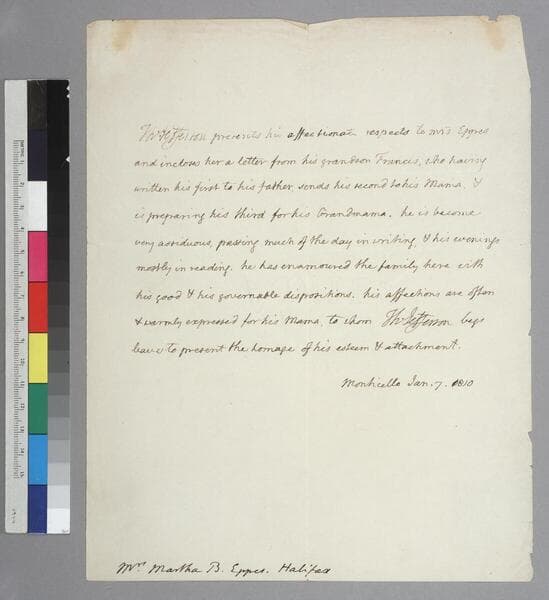 Th: Jefferson presents his affectionate respects to mrs Eppes
and incloses her a letter from his grandson Francis, who having
written his first to his father sends his second to his Mama, &
is preparing his third for his Grandmama. he is become
very assiduous, passing much of the day in writing, & his evenings
mostly in reading. he has enamoured the family here with
his good & his governable dispositions. his affections are often
& warmly expressed for his Mama, to whom Th: Jefferson begs
leave to present the homage of his esteem & attachment.
Monticello Jan. 7. 1810
Mrs. Martha B. Eppes. Halifax